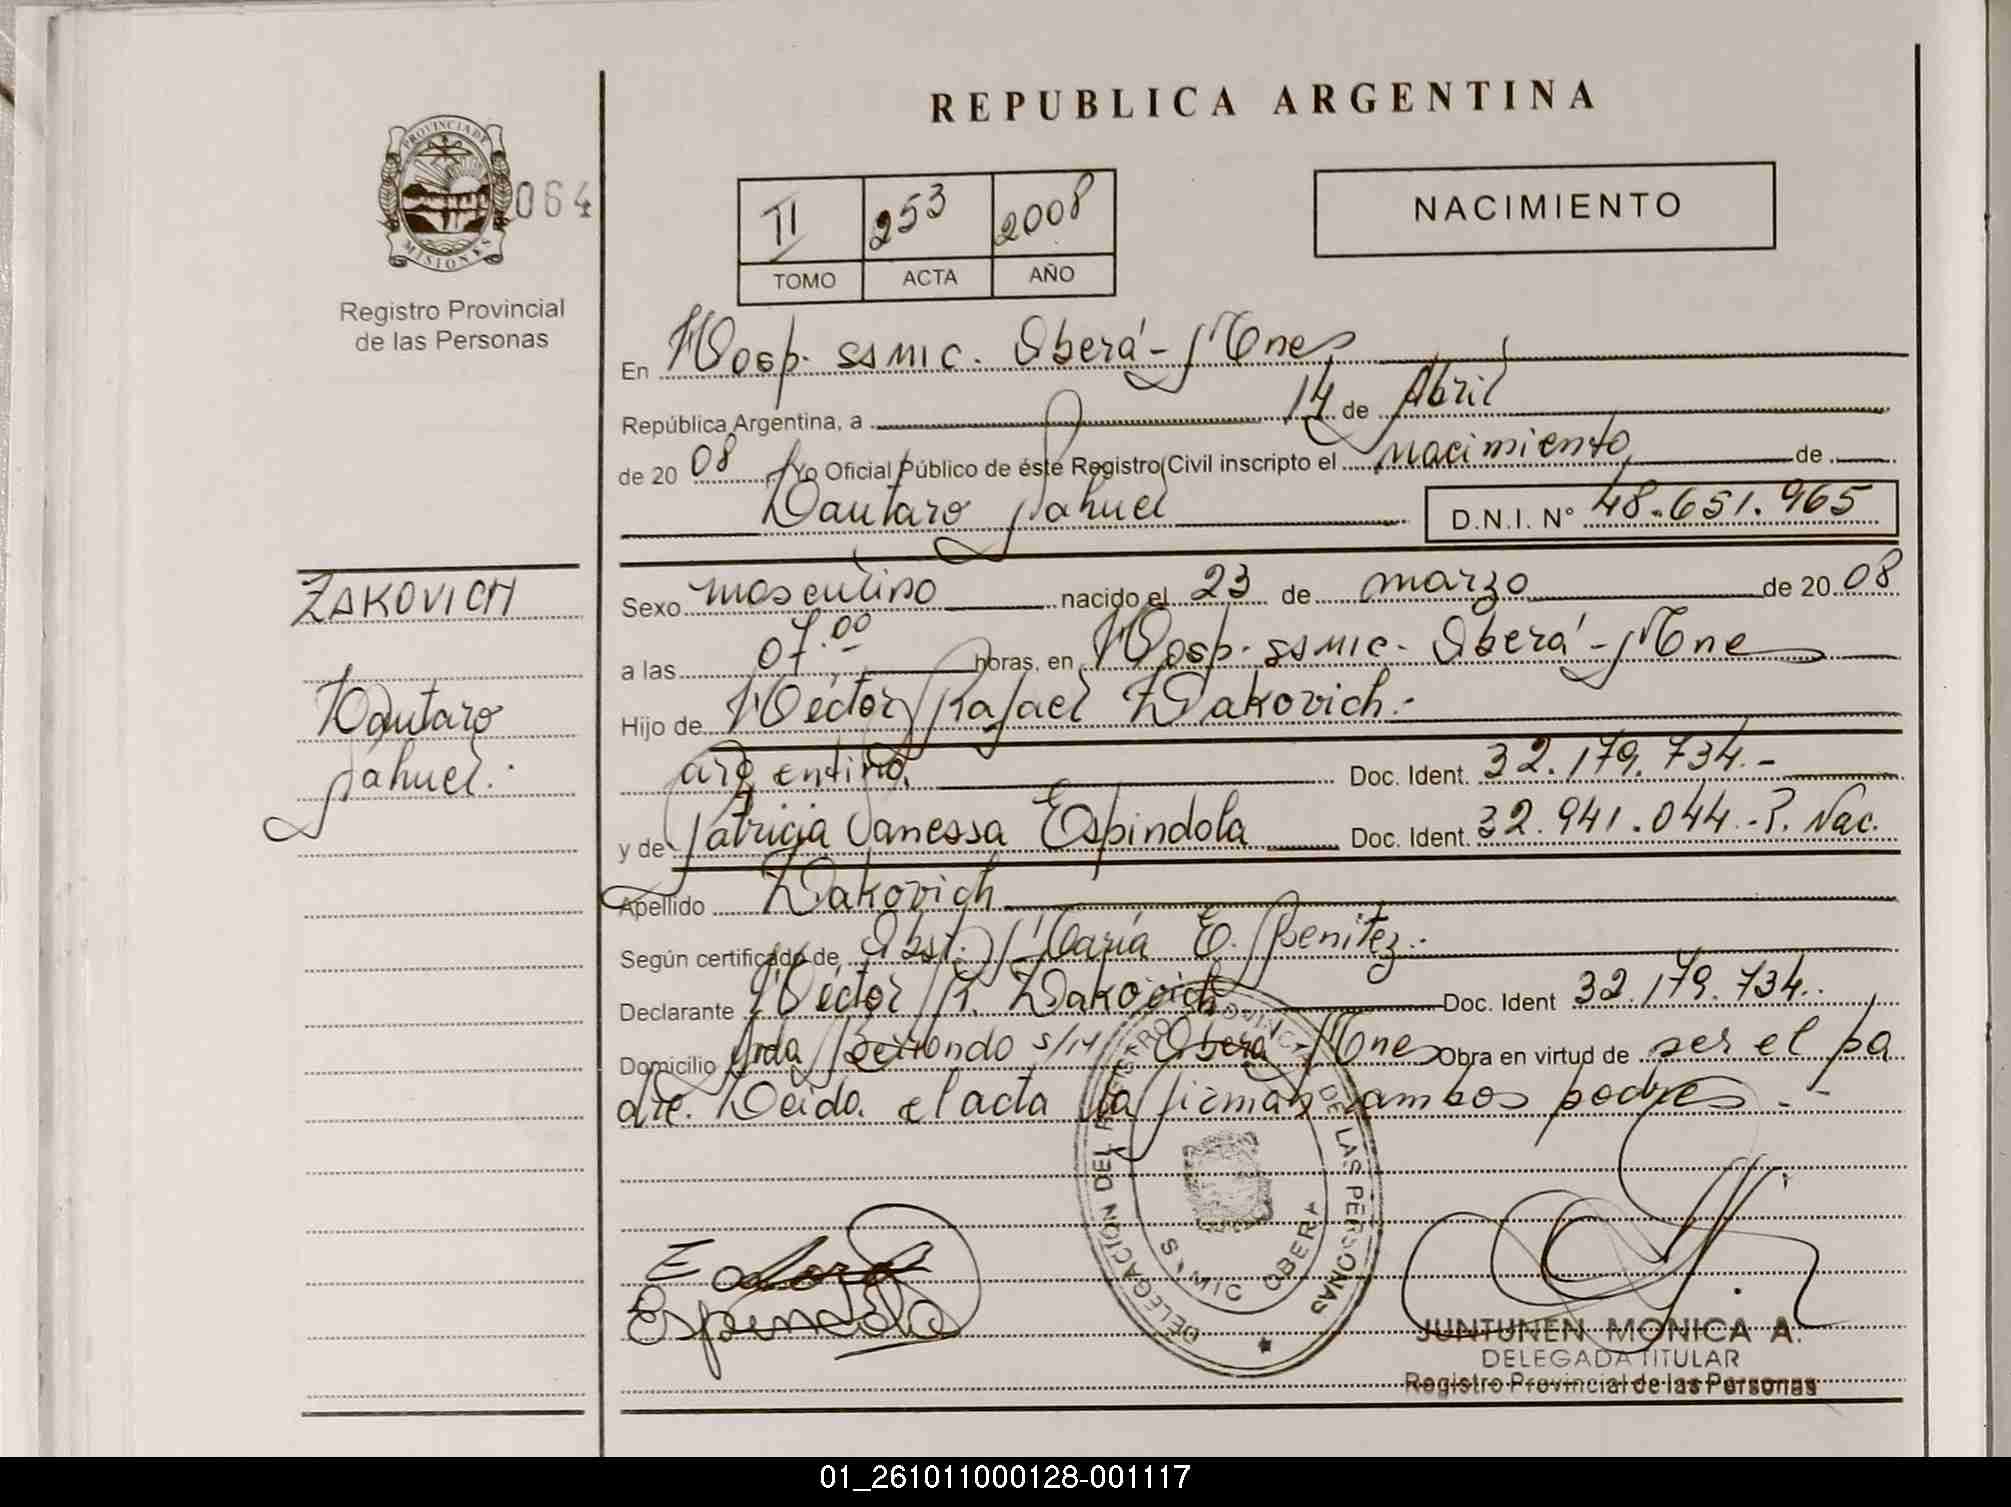 REPUBLICA ARGENTINA
PROVINCIA DE
MISIONES
064
Registro Provincial
de las Personas
II 253 2008
TOMO ACTA AÑO
NACIMIENTO
En Hosp. SAMIC. Oberá - Mnes
República Argentina, a 14 de Abril
de 20 08 Yo Oficial Público de éste Registro Civil inscripto el nacimiento de
Lautaro Nahuel D.N.I. N° 48.651.965
ZAKOVICH
Lautaro
Nahuel.
Sexo masculino nacido el 23 de marzo de 20 08
a las 07.00 horas, en Hosp. SAMIC. Oberá - Mne
Hijo de Héctor Rafael Zakovich.-
argentino, Doc. Ident. 32.179.734.-
y de Patricia Vanessa Espindola Doc. Ident. 32.941.044.- P. Nac.
Apellido Zakovich
Según certificado de Obst. María E. Benitez.-
Declarante Héctor R. Zakovich Doc. Ident 32.179.734.
Domicilio Avda Berrondo s/n Oberá Mnes Obra en virtud de ser el pa
dre. Leida el acta la firman ambos padres.-
DELEGACIÓN DEL REGISTRO PROVINCIAL DE LAS PERSONAS
SAMIC OBERA
Espindola
JUNTUNEN MONICA A.
DELEGADA TITULAR
Registro Provincial de las Personas
01_261011000128-001117